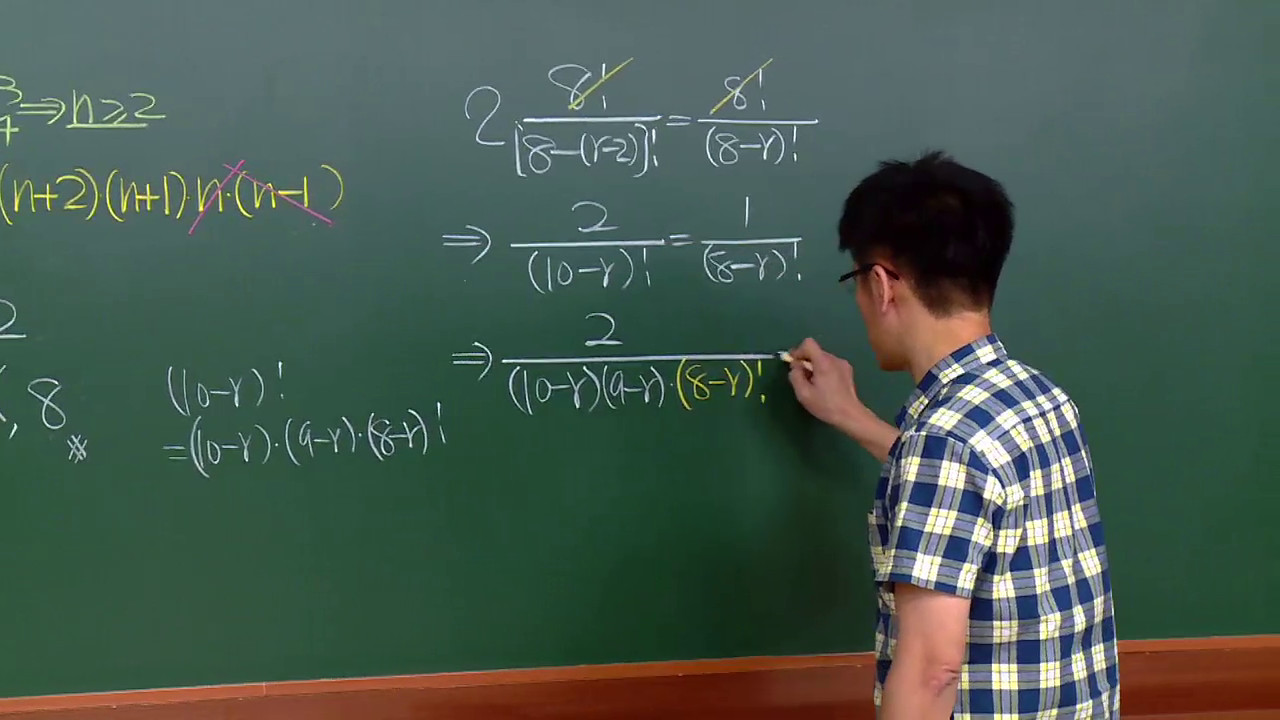 3/4 ⇒ n ≥ 2
(n+2)·(n+1)·n·(n-1)
2
, 8
※
(10-r)!
=(10-r)·(9-r)·(8-r)!
2 8!/[8-(r-2)]! = 8!/(8-r)!
⇒ 2/(10-r)! = 1/(8-r)!
⇒ 2/(10-r)(9-r)·(8-r)!